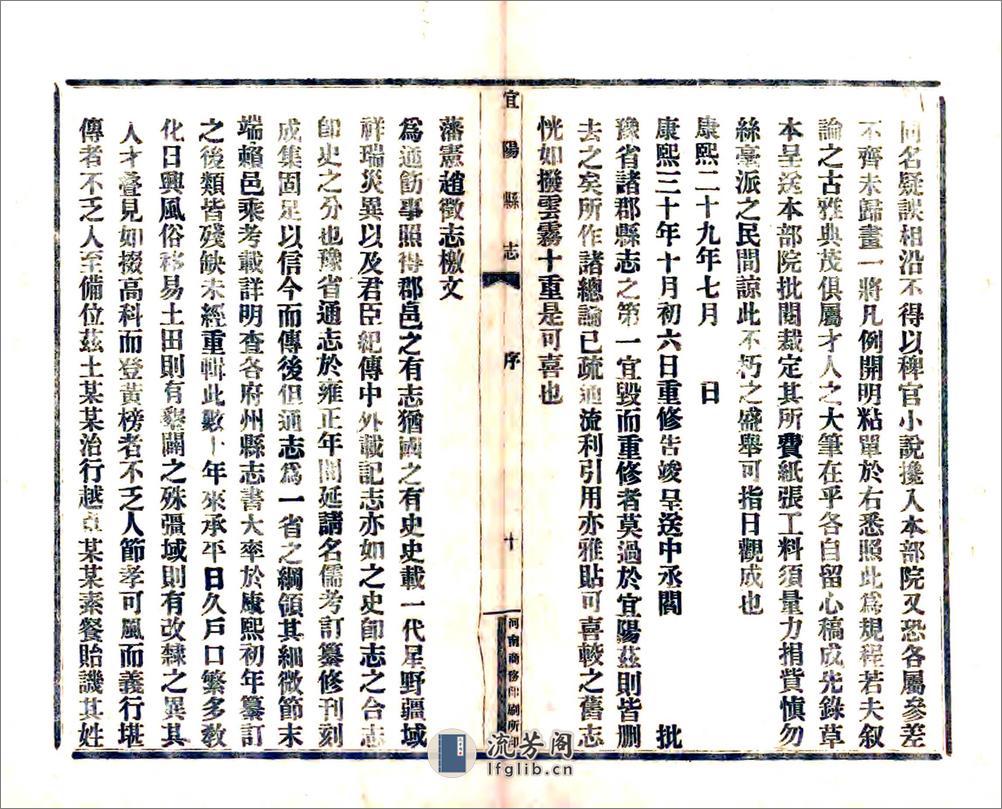 同名疑誤相沿不得以稗官小說攙入本部院又恐各屬參差
不齊未歸畫一將凡例開明粘單於右悉照此爲規程若夫叙
論之古雅典茂俱屬才人之大筆在乎各自留心稿成先錄草
本呈送本部院批閱裁定其所費紙張工料須量力捐貲愼勿
絲毫派之民間諒此不朽之盛舉可指日觀成也
康熙二十九年七月 日
康熙三十年十月初六日重修告竣呈送中丞閻 批
豫省諸郡縣志之第一宜毀而重修者莫過於宜陽茲則皆删
去之矣所作諸總論已疏通流利引用亦雅貼可喜較之舊志
恍如撥雲霧十重是可喜也
宜陽縣志 序 十 河南商務印刷所印
藩憲趙徵志檄文
爲通飭事照得郡邑之有志猶國之有史史載一代星野疆域
祥瑞災異以及君臣紀傳中外載記志亦如之史卽志之合志
卽史之分也豫省通志於雍正年間延請名儒考訂纂修刊刻
成集固足以信今而傳後但通志爲一省之綱領其細微節末
端賴邑乘考載詳明查各府州縣志書大率於康熙初年纂訂
之後類皆殘缺未經重輯此數十年來承平日久戶口繁多敎
化日興風俗移易土田則有墾闢之殊疆域則有改隸之異其
人才叠見如掇高科而登黃榜者不乏人節孝可風而義行堪
傳者不乏人至備位茲土某某治行越卓某某素餐貽譏其姓
流芳阁
lfglib.cn